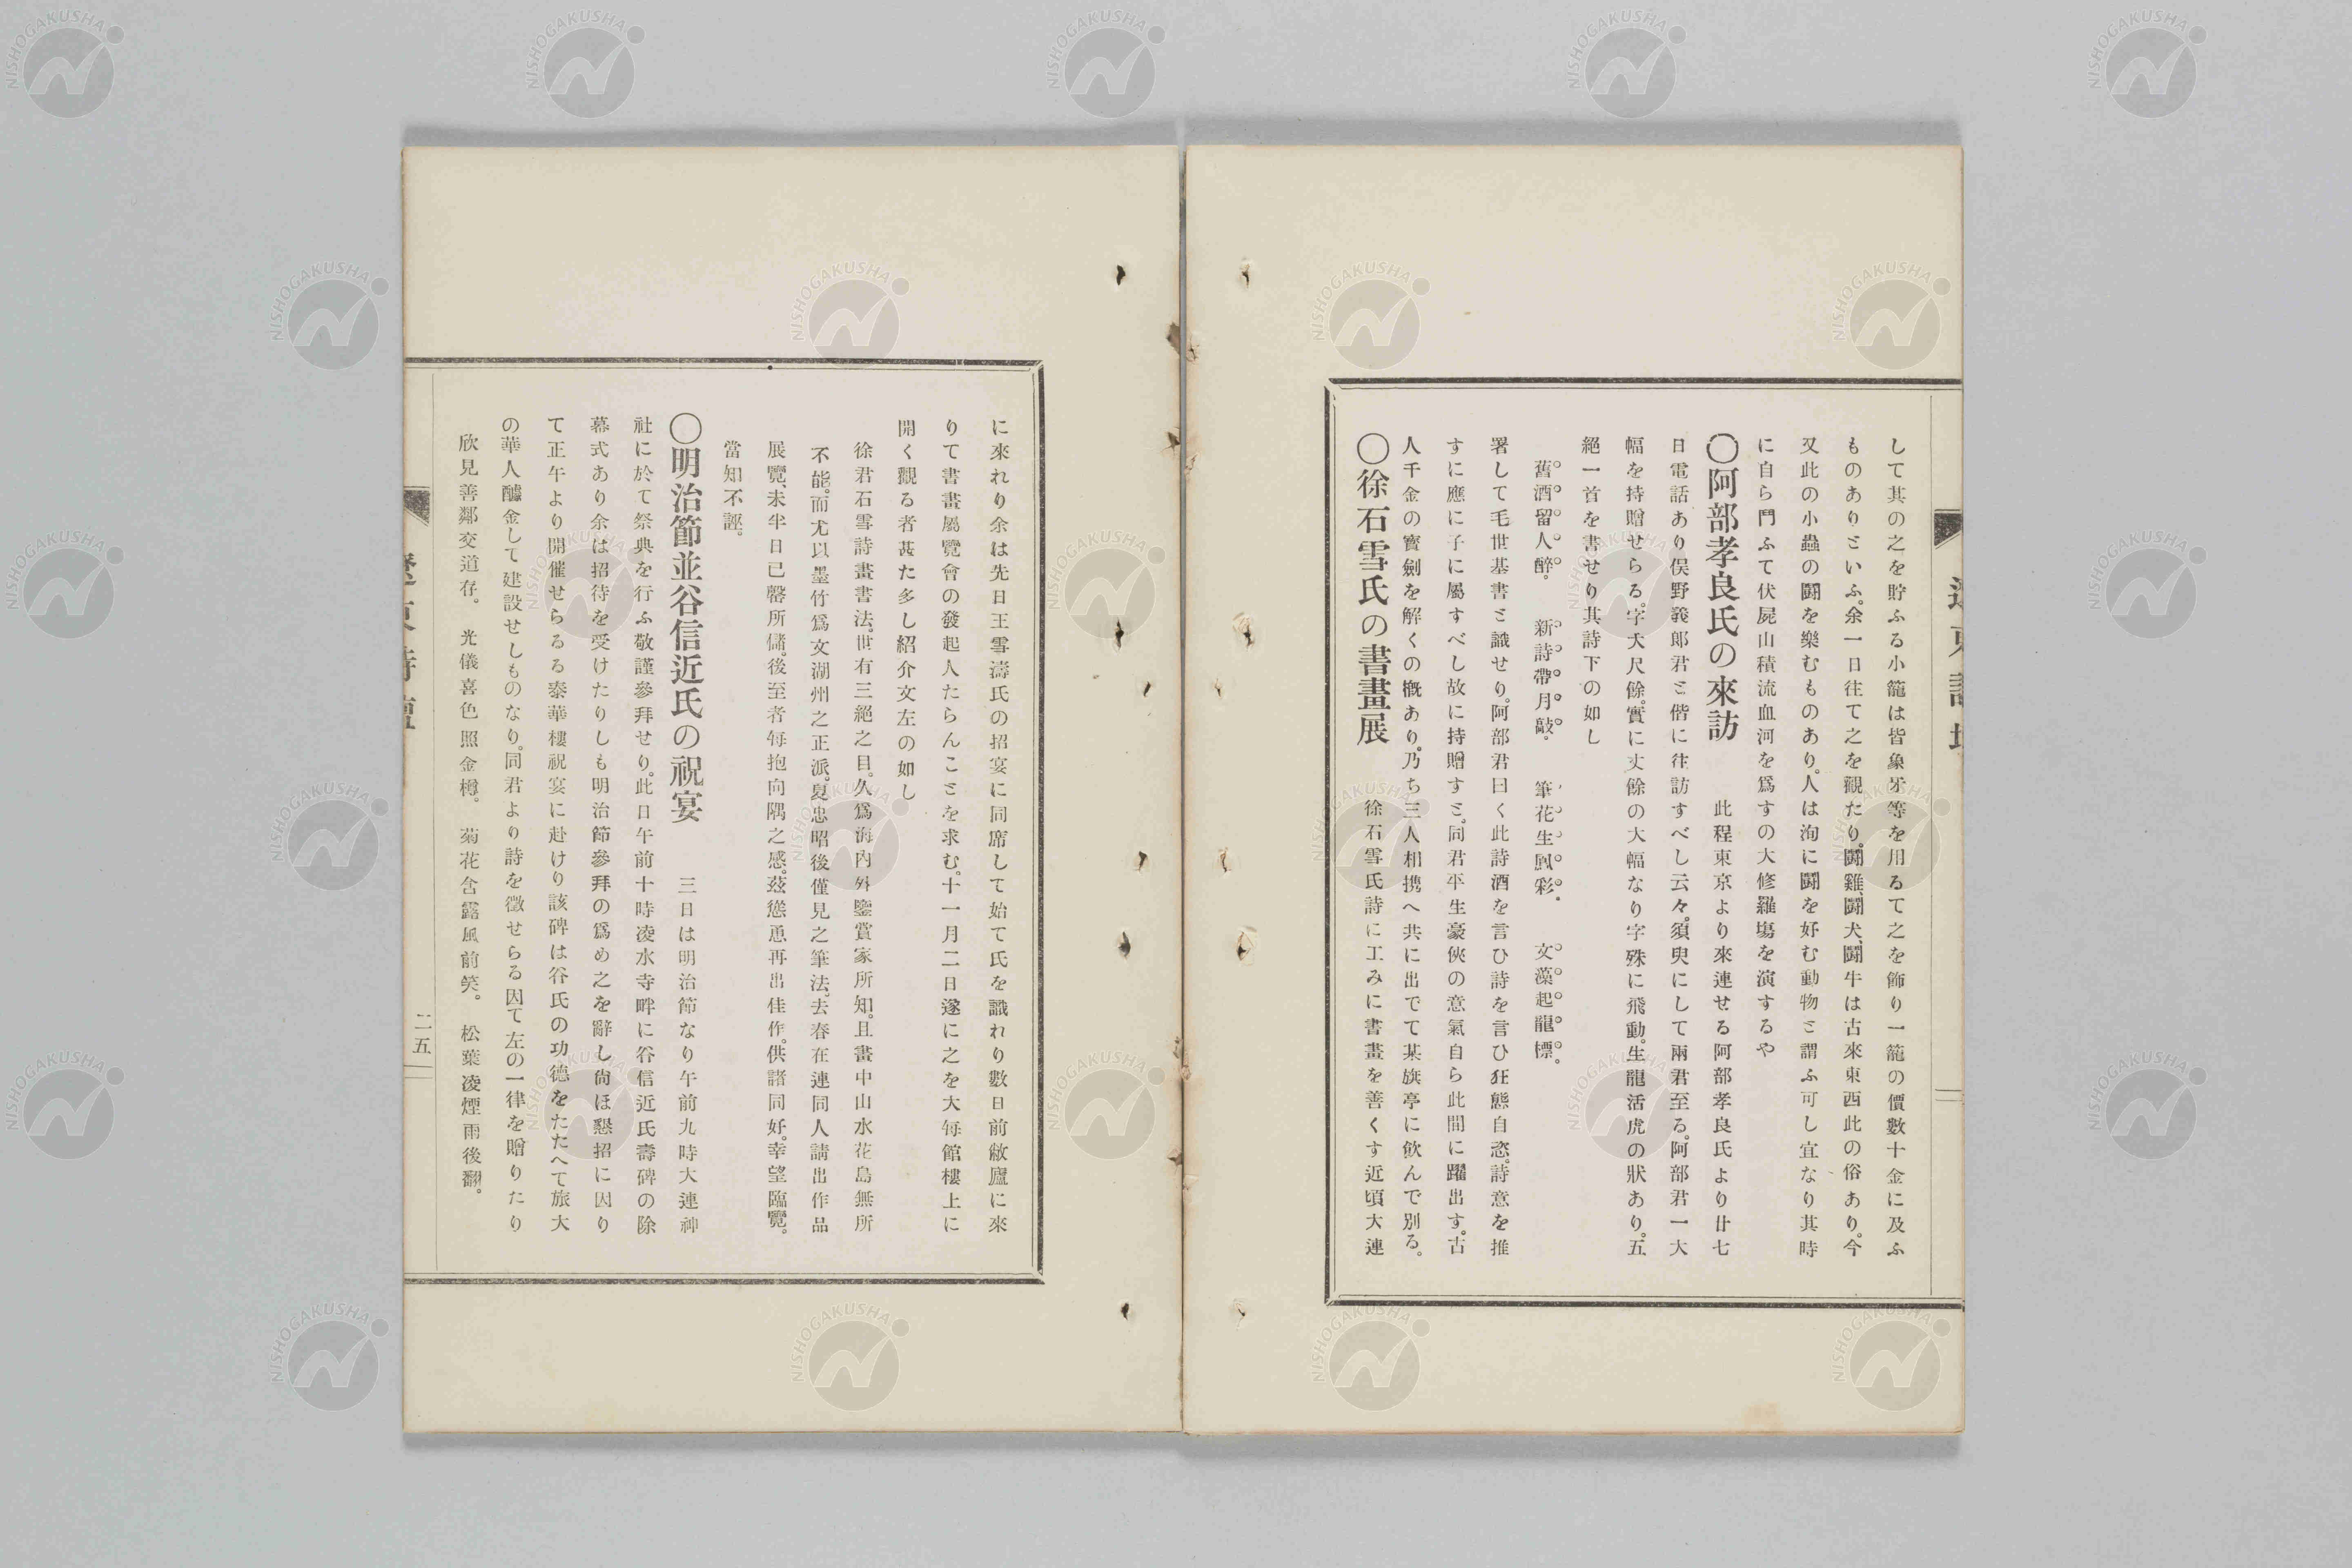 して其の之を貯ふる小籠は皆象牙等を用ゐて之を飾り一籠の價數十金に及ふ
ものありといふ。余一日往て之を觀たり。鬪雞、鬪犬、鬪牛は古來東西此の俗あり。今
又此の小蟲の鬪を樂むものあり。人は洵に鬪を好む動物と謂ふ可し宜なり其時
に自ら鬥ふて伏屍山積流血河を爲すの大修羅塲を演するや
〇阿部孝良氏の來訪　此程東京より來連せる阿部孝良氏より廿七
日電話あり俣野義郎君と偕に往訪すべし云々。須臾にして兩君至る。阿部君一大
幅を持贈せらる。字大尺餘。實に丈餘の大幅なり字殊に飛動。生龍活虎の狀あり。五
絕一首を書せり其詩下の如し
舊酒留人醉。　新詩帶月敲。　筆花生鳳彩。　文藻起龍標。
署して毛世基書と識せり。阿部君曰く此詩酒を言ひ詩を言ひ狂態自恣。詩意を推
すに應に子に屬すべし故に持贈すと。同君平生豪俠の意氣自ら此間に躍出す。古
人千金の寶劍を解くの概あり。乃ち三人相携へ共に出でて某旗亭に飲んで別る。
〇徐石雪氏の書畫展　徐石雪氏詩に工みに書畫を善くす近頃大連
に來れり余は先日王雪濤氏の招宴に同席して始て氏を識れり數日前敝廬に來
りて書畫屬覽會の發起人たらんことを求む。十一月二日遂に之を大每館樓上に
開く觀る者甚た多し紹介文左の如し
徐君石雪詩畫書法。世有三絕之目。久爲海內外鑒賞家所知。且畫中山水花鳥無所
不能。而尤以墨竹爲文湖州之正派。夏忠昭後僅見之筆法。去春在連同人請出作品
展覽、未半日已罄所儲。後至者每抱向隅之感。茲慫恿再出佳作。供諸同好。幸望臨覽。
當知不誣。
〇明治節並谷信近氏の祝宴　三日は明治節なり午前九時大連神
社に於て祭典を行ふ敬謹參拜せり。此日午前十時凌水寺畔に谷信近氏壽碑の除
幕式あり余は招待を受けたりしも明治節參拜の爲め之を辭し尙ほ懇招に因り
て正午より開催せらるる泰華樓祝宴に赴けり該碑は谷氏の功德をたたへて旅大
の華人醵金して建設せしものなり。同君より詩を徵せらる因て左の一律を贈りたり
欣見善鄰交道存。　光儀喜色照金樽。　菊花含露風前笑。　松葉凌煙雨後翻。
二五
NISHOGAKUSHA